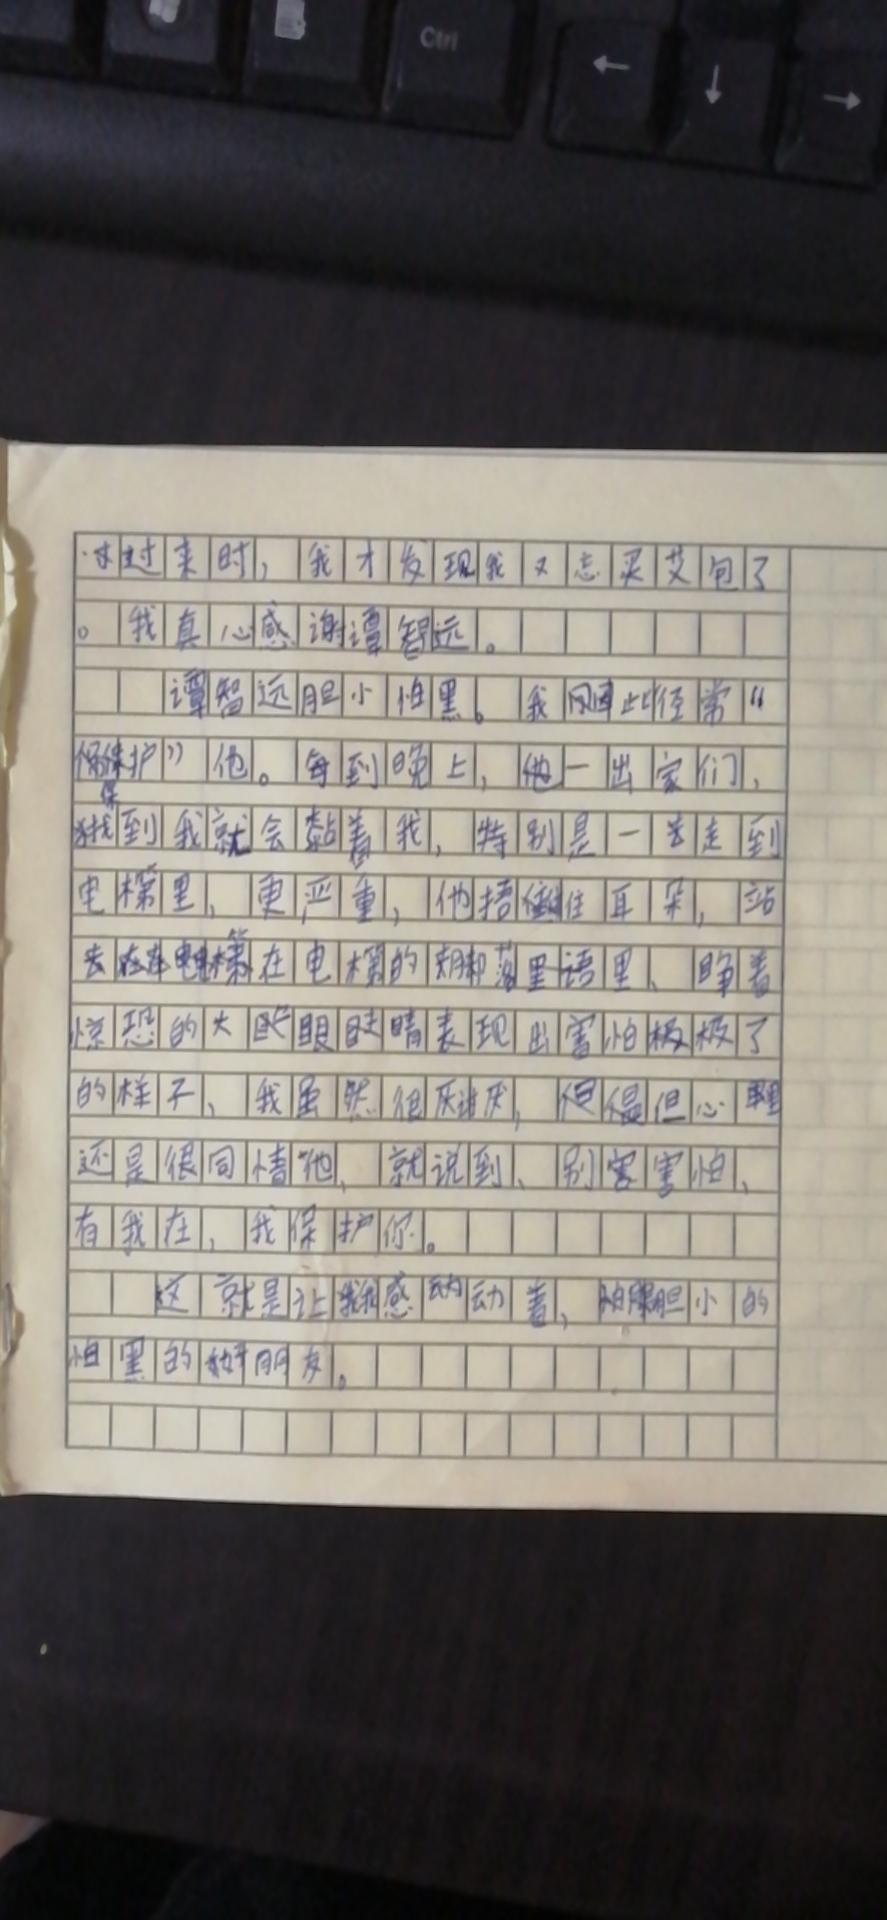 Ctrl
← ↓ →
过来时，我才发现我又忘买艾包了
。我真心感谢谭智远。
谭智远胆小怕黑。我因此经常“
保护”他。每到晚上，他一出家们，
找到我就会黏着我，特别是一去走到
电梯里，更严重，他捂住耳朵，站
在电梯的角落里，睁着
惊恐的大眼睛表现出害怕极了
的样子，我虽然很厌，但心里
还是很同情他，就说到、别害怕、
有我在，我保护你。
这就是让我感动着，胆小的
怕黑的好朋友。